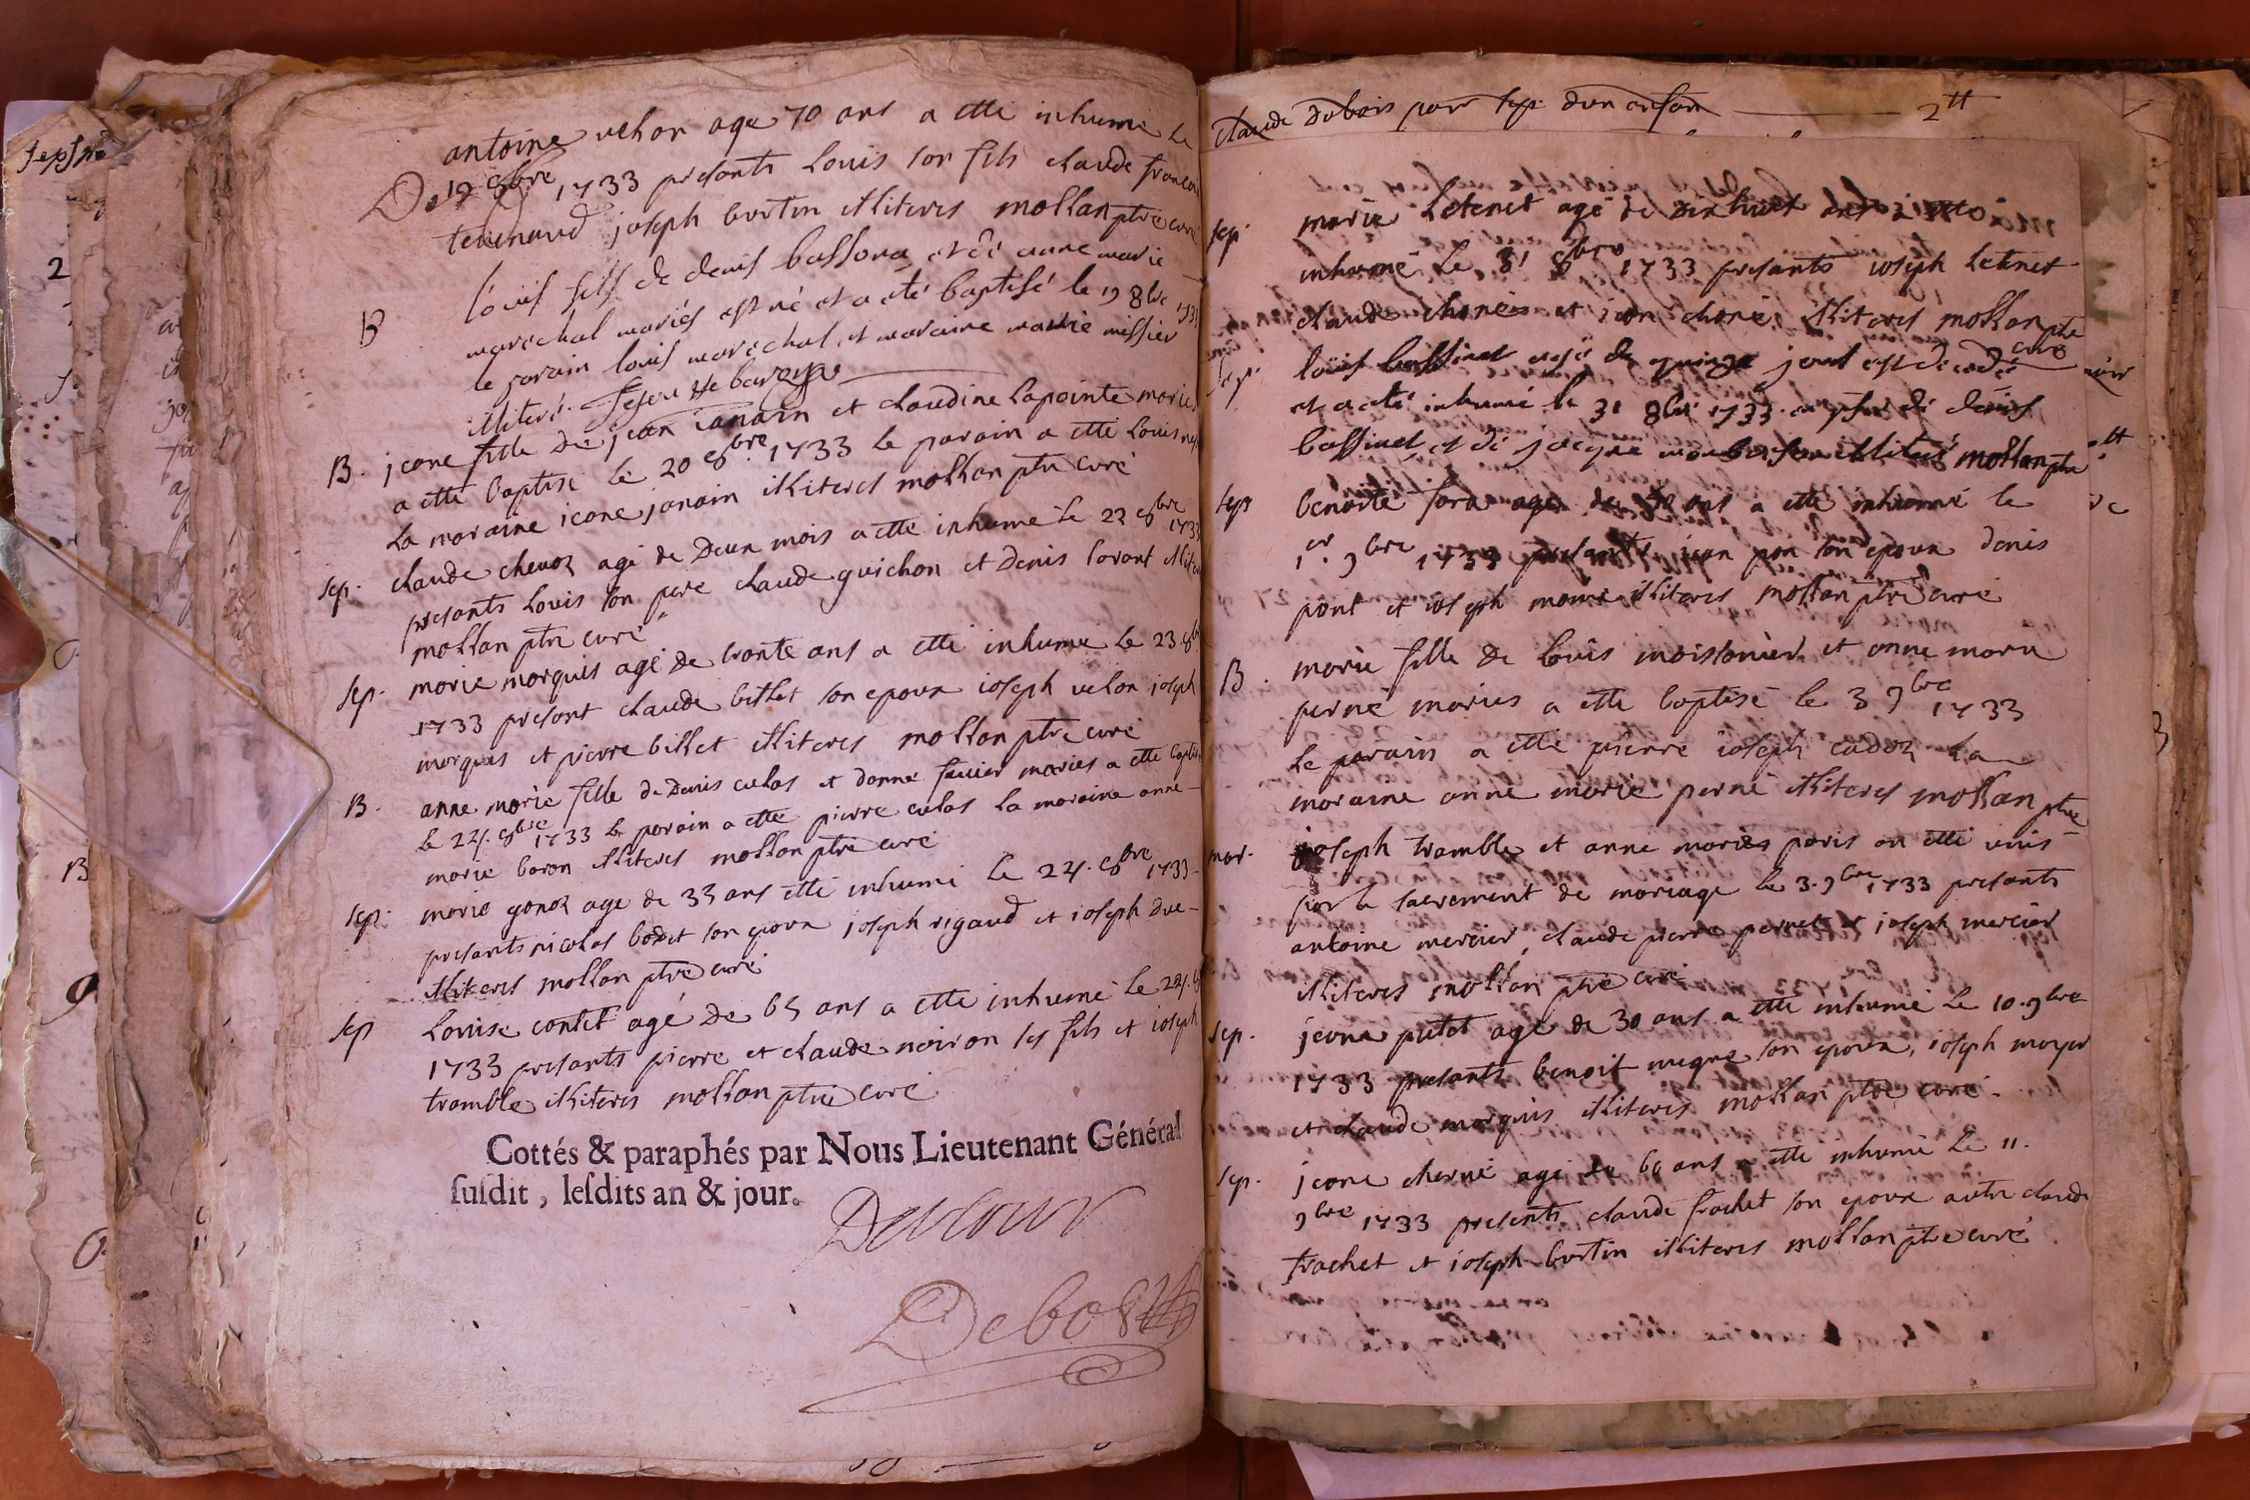 antoine velon age 70 ans a etté inhumé le
De 19 8bre 1733 presants Louis son fils claude francois
joseph burtin illiteres mollan ptre curé
Loüis fils de denis bassona et de anne marie
marechal mariés est né et a eté baptisé le 19 8bre 1733
B
le parain louis marechal et maraine marie missier
illiteré.
B. jeane fille de jean janain et claudine lapointe mariés
a etté baptisé le 20 8bre 1733 le parain a etté Louis
La maraine jeane janain illiteres mollan ptre curé
sep. claude chevoz agé de Deux mois a etté inhumé le 22 8bre 1733
presants Louis son pere claude guichon et Denis lorant illiteres
mollan ptre curé
sep. marie marquis agé de trante ans a etté inhumé le 23 8bre
1733 presant claude billet son epoux ioseph velon ioseph
marquis et pierre billet illiteres mollan ptre curé
B. anne marie fille de Denis culas et danne favier mariés a etté baptisé
le 24. 8bre 1733 le parain a etté pierre culas la maraine anne
marie boron illiteres mollan ptre curé
sep. marie gonoz age de 33 ans etté inhumé le 24. 8bre 1733
presants nicolas bodet son epoux joseph rigaud et ioseph due
illiteres mollan ptre curé
sep Louise contet agé de 65 ans a etté inhumé le 24. 8bre
1733 presants pierre et claude noiron ses fils et ioseph
tramble illiteres mollan ptre curé
Cottés & paraphés par Nous Lieutenant Général
ſuſdit, leſdits an & jour.
Debost
claude dubois pour sep. dun enfan 2tt
sep. marie Letenet agé de dixhuit ans a etté
inhumé le 31 8bre 1733 presants ioseph Letenet
claude choné et jean choné illiteres mollan ptre
curé
sep. loüis bassinet agé de quinze jours est decedé
et a eté inhumé le 31 8bre 1733. en psce de denis
bassinet et de illiteré mollan ptre
sep benoite fora age de 50 ans a etté inhumé le
1er. 9bre 1733 presants jean pon son epoux denis
pont et ioseph illiteres mollan ptre curé
B. marie fille de loüis moissonier et anne marie
perné mariés a etté baptisé le 3 9bre 1733
le parain a etté pierre ioseph cadoz La
maraine anne marie perné illiteres mollan ptre
mar. joseph tramble et anne marie paris on etté unis
par le sacrement de mariage le 3. 9bre 1733 presants
antoine mercier, claude pierre pernet et joseph mercier
illiteres mollan ptre curé
sep. jeane putet agé de 30 ans a etté inhumé le 10. 9bre
1733 presants benoit megne son epoux, ioseph moyer
et claude marquis illiteres mollan ptre curé.
sep. jeane cherné agé de 60 ans a etté inhumé le 11.
9bre 1733 presents claude frachet son epoux autre claude
frachet et ioseph burtin illiteres mollan ptre curé